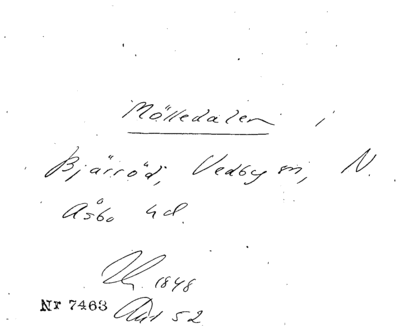 Mölledalen i
Bjärröd, Vedby sn, N.
Åsbo hd.
1848
Nr 7463
52